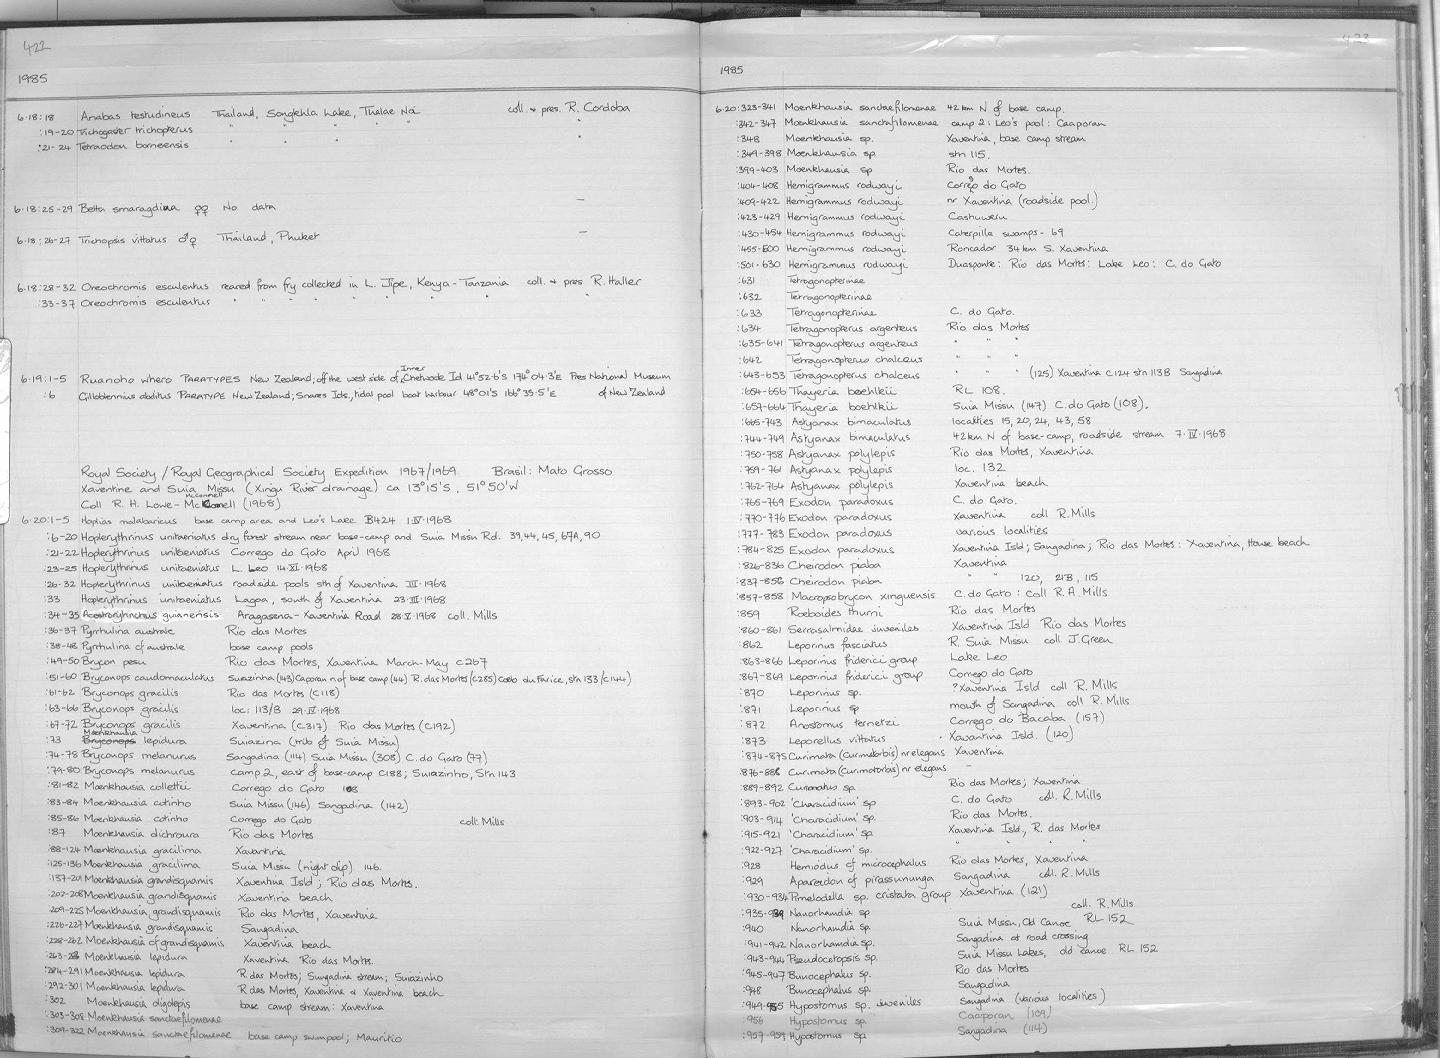 422
1985
6.18:18 Anabas testudineus Thailand, Songkhla Lake, Thalae Noi coll. + pres. R. Cordoba
:19-20 Trichogaster trichopterus " " " " "
:21-24 Tetraodon borneensis " " "
6.18:25-29 Betta smaragdina ♀♀ No data —
6.18:26-27 Trichopsis vittatus ♂♀ Thailand, Phuket —
6.18:28-32 Oreochromis esculentus reared from fry collected in L. Jipe, Kenya-Tanzania coll. + pres R. Haller
:33-37 Oreochromis esculentus " " " " " "
6.19:1-5 Ruanoho whero PARATYPES New Zealand; off the west side of Inner Chetwode Id 41°52.6'S 174°04.3'E Pres National Museum
:6 Gilloblennius abditus PARATYPE New Zealand; Snares Ids, tidal pool boat harbour 48°01'S 166°35.5'E of New Zealand
Royal Society / Royal Geographical Society Expedition 1967/1969 Brasil: Mato Grosso
Xavantine and Suia Missu (Xingu River drainage) ca 13°15'S, 51°50'W
Coll R. H. Lowe-McConnell (1968)
6.20:1-5 Hoplias malabaricus base camp area and Leo's Lake B424 1.IV.1968
:6-20 Hoplerythrinus unitaeniatus dry forest stream near base-camp and Suia Missu Rd. 39,44,45,67A,90
:21-22 Hoplerythrinus unitaeniatus Corrego do Gato April 1968
:23-25 Hoplerythrinus unitaeniatus L. Leo 14.XI.1968
:26-32 Hoplerythrinus unitaeniatus roadside pools sth of Xavantina III.1968
:33 Hoplerythrinus unitaeniatus Lagoa, south of Xavantina 23.III.1968
:34-35 Acestrorhynchus guianensis Aragasena - Xavantina Road 28.V.1968 coll. Mills
:36-37 Pyrrhulina australe Rio das Mortes
:38-48 Pyrrhulina cf australe base camp pools
:49-50 Brycon pesu Rio das Mortes, Xavantina March-May C267
:51-60 Bryconops caudomaculatus Suiazinha (143) Caporan n of base camp (44) R. das Mortes (C285) do Farice, stn 133/C144)
:61-62 Bryconops gracilis Rio das Mortes (C118)
:63-66 Bryconops gracilis loc: 113/B 29.IV.1968
:67-72 Bryconops gracilis Xavantina (C317) Rio das Mortes (C192)
:73 Moenkhausia lepidura Suiazina (trib of Suia Missu)
:74-78 Bryconops melanurus Sangadina (114) Suia Missu (308) C. do Gato (77)
:79-80 Bryconops melanurus camp 2, east of base-camp C188; Suiazinho, Stn 143
:81-82 Moenkhausia collettii Corrego do Gato 108
:83-84 Moenkhausia cotinho Suia Missu (146) Sangadina (142)
:85-86 Moenkhausia cotinho Corrego do Gato coll. Mills
:87 Moenkhausia dichroura Rio das Mortes
:88-124 Moenkhausia gracilima Xavantina
:125-136 Moenkhausia gracilima Suia Missu (night dip) 146.
:137-201 Moenkhausia grandisquamis Xavantina Isld; Rio das Mortes.
:202-208 Moenkhausia grandisquamis Xavantina beach
:209-225 Moenkhausia grandisquamis Rio das Mortes, Xavantina
:226-227 Moenkhausia grandisquamis Sangadina
:228-262 Moenkhausia cf grandisquamis Xavantina beach
:263-283 Moenkhausia lepidura Xavantina Rio das Mortes.
:284-291 Moenkhausia lepidura R das Mortes; Sangadina stream; Suiazinho
:292-301 Moenkhausia lepidura R das Mortes, Xavantina & Xavantina beach
:302 Moenkhausia oligolepis base camp stream: Xavantina
:303-308 Moenkhausia sanctaefilomenae
:309-322 Moenkhausia sanctaefilomenae base camp swimpool; Mauritio
423
1985
6.20:323-341 Moenkhausia sanctaefilomenae 42 km N of base camp.
:342-347 Moenkhausia sanctaefilomenae camp 2: Leo's pool: Caaporan
:348 Moenkhausia sp. Xavantina, base camp stream
:349-398 Moenkhausia sp. stn 115.
:399-403 Moenkhausia sp Rio das Mortes.
:404-408 Hemigrammus rodwayi Corrego do Gato
:409-422 Hemigrammus rodwayi nr Xavantina (roadside pool.)
:423-429 Hemigrammus rodwayi Cashuweru
:430-454 Hemigrammus rodwayi Caterpilla swamps - 69
:455-500 Hemigrammus rodwayi Roncador 34 km S. Xavantina
:501-630 Hemigrammus rodwayi Duasponte: Rio das Mortes: Lake Leo: C. do Gato
:631 Tetragonopterinae
:632 Tetragonopterinae
:633 Tetragonopterinae C. do Gato.
:634 Tetragonopterus argenteus Rio das Mortes
:635-641 Tetragonopterus argenteus " " "
:642 Tetragonopterus chalceus " " "
:643-653 Tetragonopterus chalceus " " " (125) Xavantina C124 stn 113B Sangadina
:654-656 Thayeria boehlkeii RL 108.
:657-664 Thayeria boehlkei Suia Missu (147) C. do Gato (108).
:665-743 Astyanax bimaculatus localties 15, 20, 24, 43, 58
:744-749 Astyanax bimaculatus 42 km N of base-camp, roadside stream 7.IV.1968
:750-758 Astyanax polylepis Rio das Mortes, Xavantina
:759-761 Astyanax polylepis loc. 132
:762-764 Astyanax polylepis Xavantina beach
:765-769 Exodon paradoxus C. do Gato.
:770-776 Exodon paradoxus Xavantina coll R. Mills
:777-783 Exodon paradoxus various localities
:784-825 Exodon paradoxus Xavantina Isld; Sangadina; Rio das Mortes: Xavantina, House beach
:826-836 Cheirodon piaba Xavantina
:837-856 Cheirodon piaba " " 120, 21B, 115
:857-858 Macropsobrycon xinguensis C. do Gato: Coll R.A. Mills
:859 Roeboides thurni Rio das Mortes
:860-861 Serrasalmidae juveniles Xavantina Isld Rio das Mortes
:862 Leporinus fasciatus R. Suia Missu coll J. Green
:863-866 Leporinus friderici group Lake Leo
:867-869 Leporinus friderici group Corrego do Gato
:870 Leporinus sp. ?Xavantina Isld coll R. Mills
:871 Leporinus sp mouth of Sangadina coll R. Mills
:872 Anostomus ternetzi Corrego do Bacaba (157)
:873 Leporellus vittatus Xavantina Isld. (120)
:874-875 Curimata (Curimatorbis) nr elegans Xavantina
:876-888 Curimata (Curimatorbis) nr elegans —
:889-892 Curimatus sp. Rio das Mortes; Xavantina
:893-902 'Characidium' sp C. do Gato coll. R. Mills
:903-914 'Characidium' sp. Rio das Mortes.
:915-921 'Characidium' sp. Xavantina Isld, R. das Mortes
:922-927 'Characidium' sp. " " " "
:928 Hemiodus cf microcephalus Rio das Mortes, Xavantina
:929 Apareiodon cf pirassununga Sangadina coll. R. Mills
:930-934 Pimelodella sp. cristata group Xavantina (121)
:935-939 Nanorhamdia sp coll. R. Mills
:940 Nanorhamdia sp. Suia Missu, Old Canoe RL 152
:941-942 Nanorhamdia sp. Sangadina at road crossing
:943-944 Pseudocetopsis sp. Suia Missu Lakes, old canoe RL 152
:945-947 Bunocephalus sp. Rio das Mortes
:948 Bunocephalus sp. Sangadina
:949-955 Hypostomus sp. juveniles Sangadina (various localities)
:956 Hypostomus sp. Caaporan (109)
:957-959 Hypostomus sp Sangadina (114)